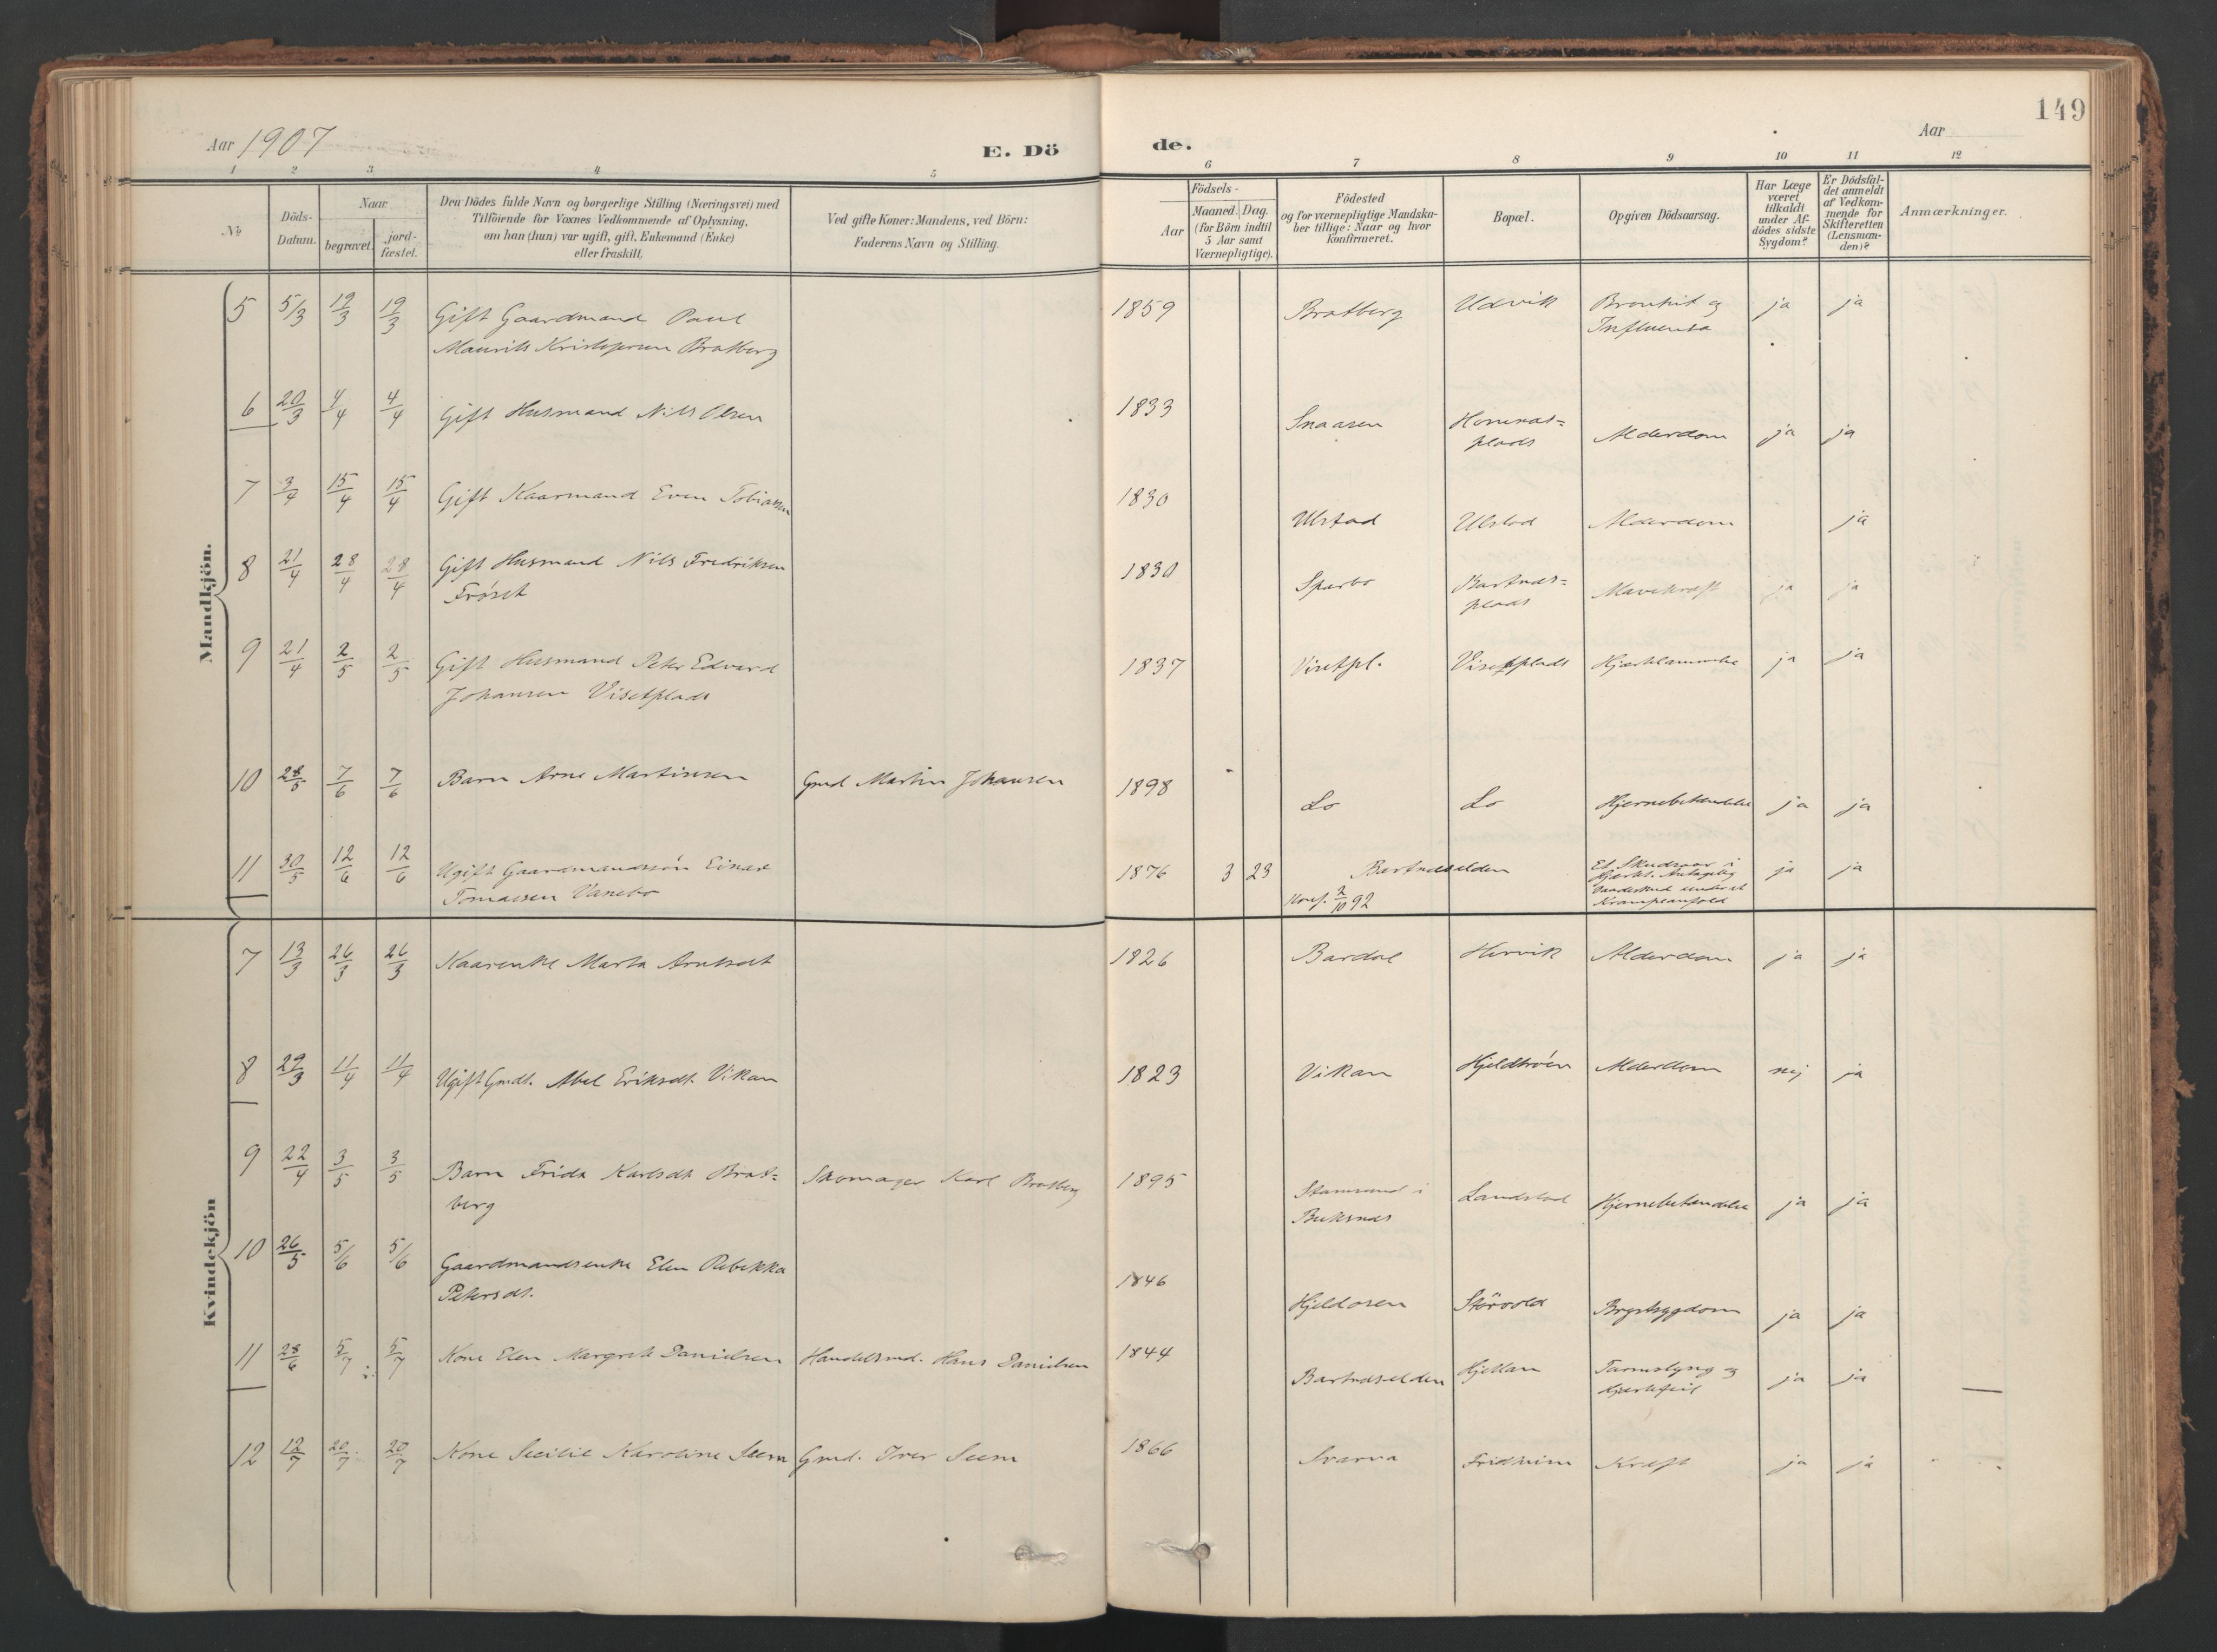 149
Aar 1907
E. Dö
de.
Aar
1 2 3 4 5 6 7 8 9 10 11 12
№
Döds-
Datum.
Naar
begravet.
jord-
fæstet.
Den Dödes fulde Navn og borgerlige Stilling (Næringsvei) med
Tilföiende for Voxnes Vedkommende af Oplysning,
om han (hun) var ugift, gift, Enkemand (Enke)
eller fraskilt.
Ved gifte Koner: Mandens, ved Börn:
Faderens Navn og Stilling.
Födsels-
Aar
Maaned. Dag.
(for Börn indtil
5 Aar samt
Værnepligtige).
Födested
og for værnepligtige Mandska-
ber tillige: Naar og hvor
konfirmeret.
Bopæl.
Opgiven Dödsaarsag.
Har Læge
været
tilkaldt
under Af-
dödes sidste
Sygdom?
Er Dödsfal-
det anmeldt
af Vedkom-
mende for
Skifteretten
(Lensman-
den)?
Anmærkninger.
Mandkjön.
5 5/3 19/3 19/3 Gift Gaardmand Paul 1859 Bratberg Udvik Bronkit og ja ja
Maurits Kristofersen Bratberg Influensa
6 20/3 4/4 4/4 Gift Husmand Nils Olsen 1833 Snaasen Homnæs= Alderdom ja ja
plads
7 3/4 15/4 15/4 Gift Kaarmand Even Tobiassen 1830 Ulstad Ulstad Alderdom ja
8 21/4 28/4 28/4 Gift Husmand Nils Fredriksen 1830 Sparbo Bartnæs= Mavekræft ja ja
Frøset plads
9 21/4 2/5 2/5 Gift Husmand Peter Edvard 1837 Visetpl. Visetplads Hjertelammelse ja ja
Johansen Visetplads
10 28/5 7/6 7/6 Barn Arne Martinsen Gmd Martin Johansen 1898 Lo Lo Hjernebetændelse ja ja
11 30/5 12/6 12/6 Ugift Gaardmandssøn Einar 1876 3 23 Bartnæsalden Et Skudsaar i ja ja
Tomassen Vanebo Konf. 2/10 92 Hjertet. Antagelig
Vaadeskud under et
Krampeanfald
Kvindekjön
7 13/3 26/3 26/3 Kaarenke Marta Arntsdt 1826 Bardal Hervik Alderdom ja ja
8 29/3 11/4 11/4 Ugift Gmdt. Abel Eriksdt. Vikan 1823 Vikan Hjeldtrøen Alderdom nej ja
9 22/4 3/5 3/5 Barn Frida Karlsdt Brat= Skomager Karl Bratberg 1895 Stamsund i Landstad Hjernebetændelse ja ja
berg Buksnæs
10 26/5 5/6 5/6 Gaardmandsenke Elen Rebekka 1846 Hjeldosen Størvold Brystsygdom ja ja
Petersdt.
11 28/6 5/7 5/7 Kone Elen Margrete Danielsen Handelsmd. Hans Danielsen 1844 Bartnæsalden Hjellan Tarmslyng og ja ja
Hjertefeil
12 12/7 20/7 20/7 Kone Secilie Karoline Seem Gmd. Iver Seem 1866 Svarva Fridheim Kræft ja ja